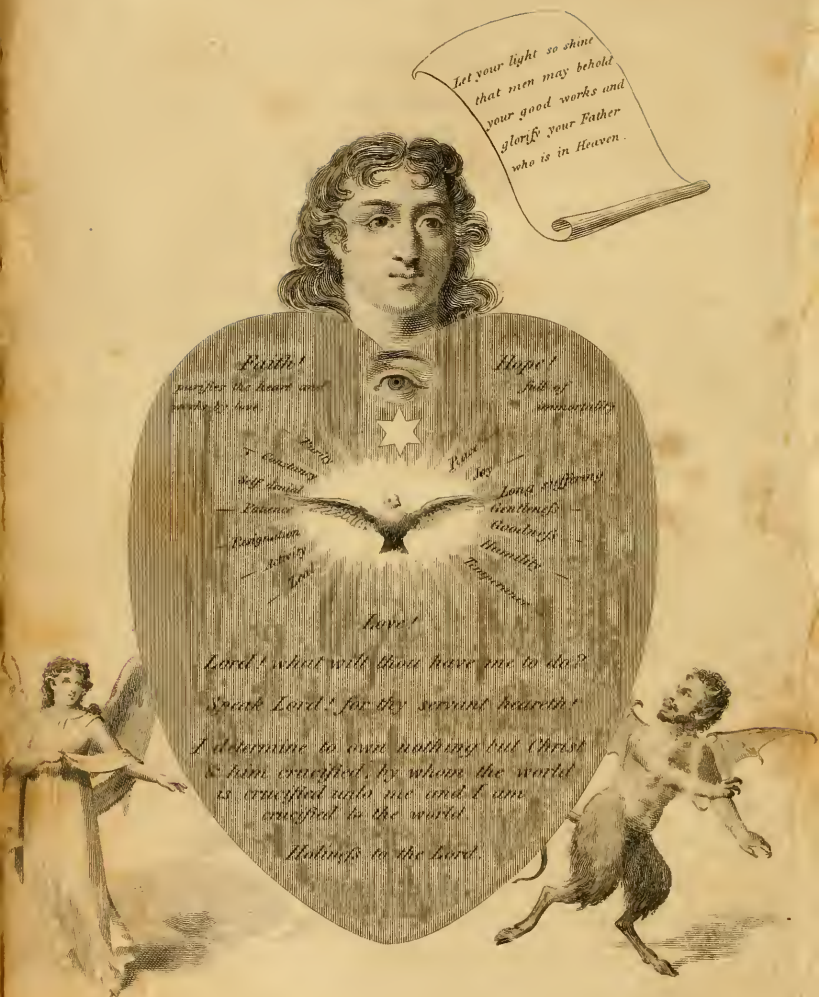 Let your light so shine
that men may behold
your good works and
glorify your Father
who is in Heaven.
Faith!
purifies the heart and
works by love
Hope!
full of
immortality
Purity
Constancy
Self denial
Patience
Resignation
Activity
Zeal
Peace
Joy
Long suffering
Gentleneſs
Goodneſs
Humility
Temperance
Love!
Lord! what wilt thou have me to do?
Speak Lord! for thy servant heareth!
I determine to own nothing but Christ
& him crucified, by whom the world
is crucified unto me and I am
crucified to the world.
Holineſs to the Lord.